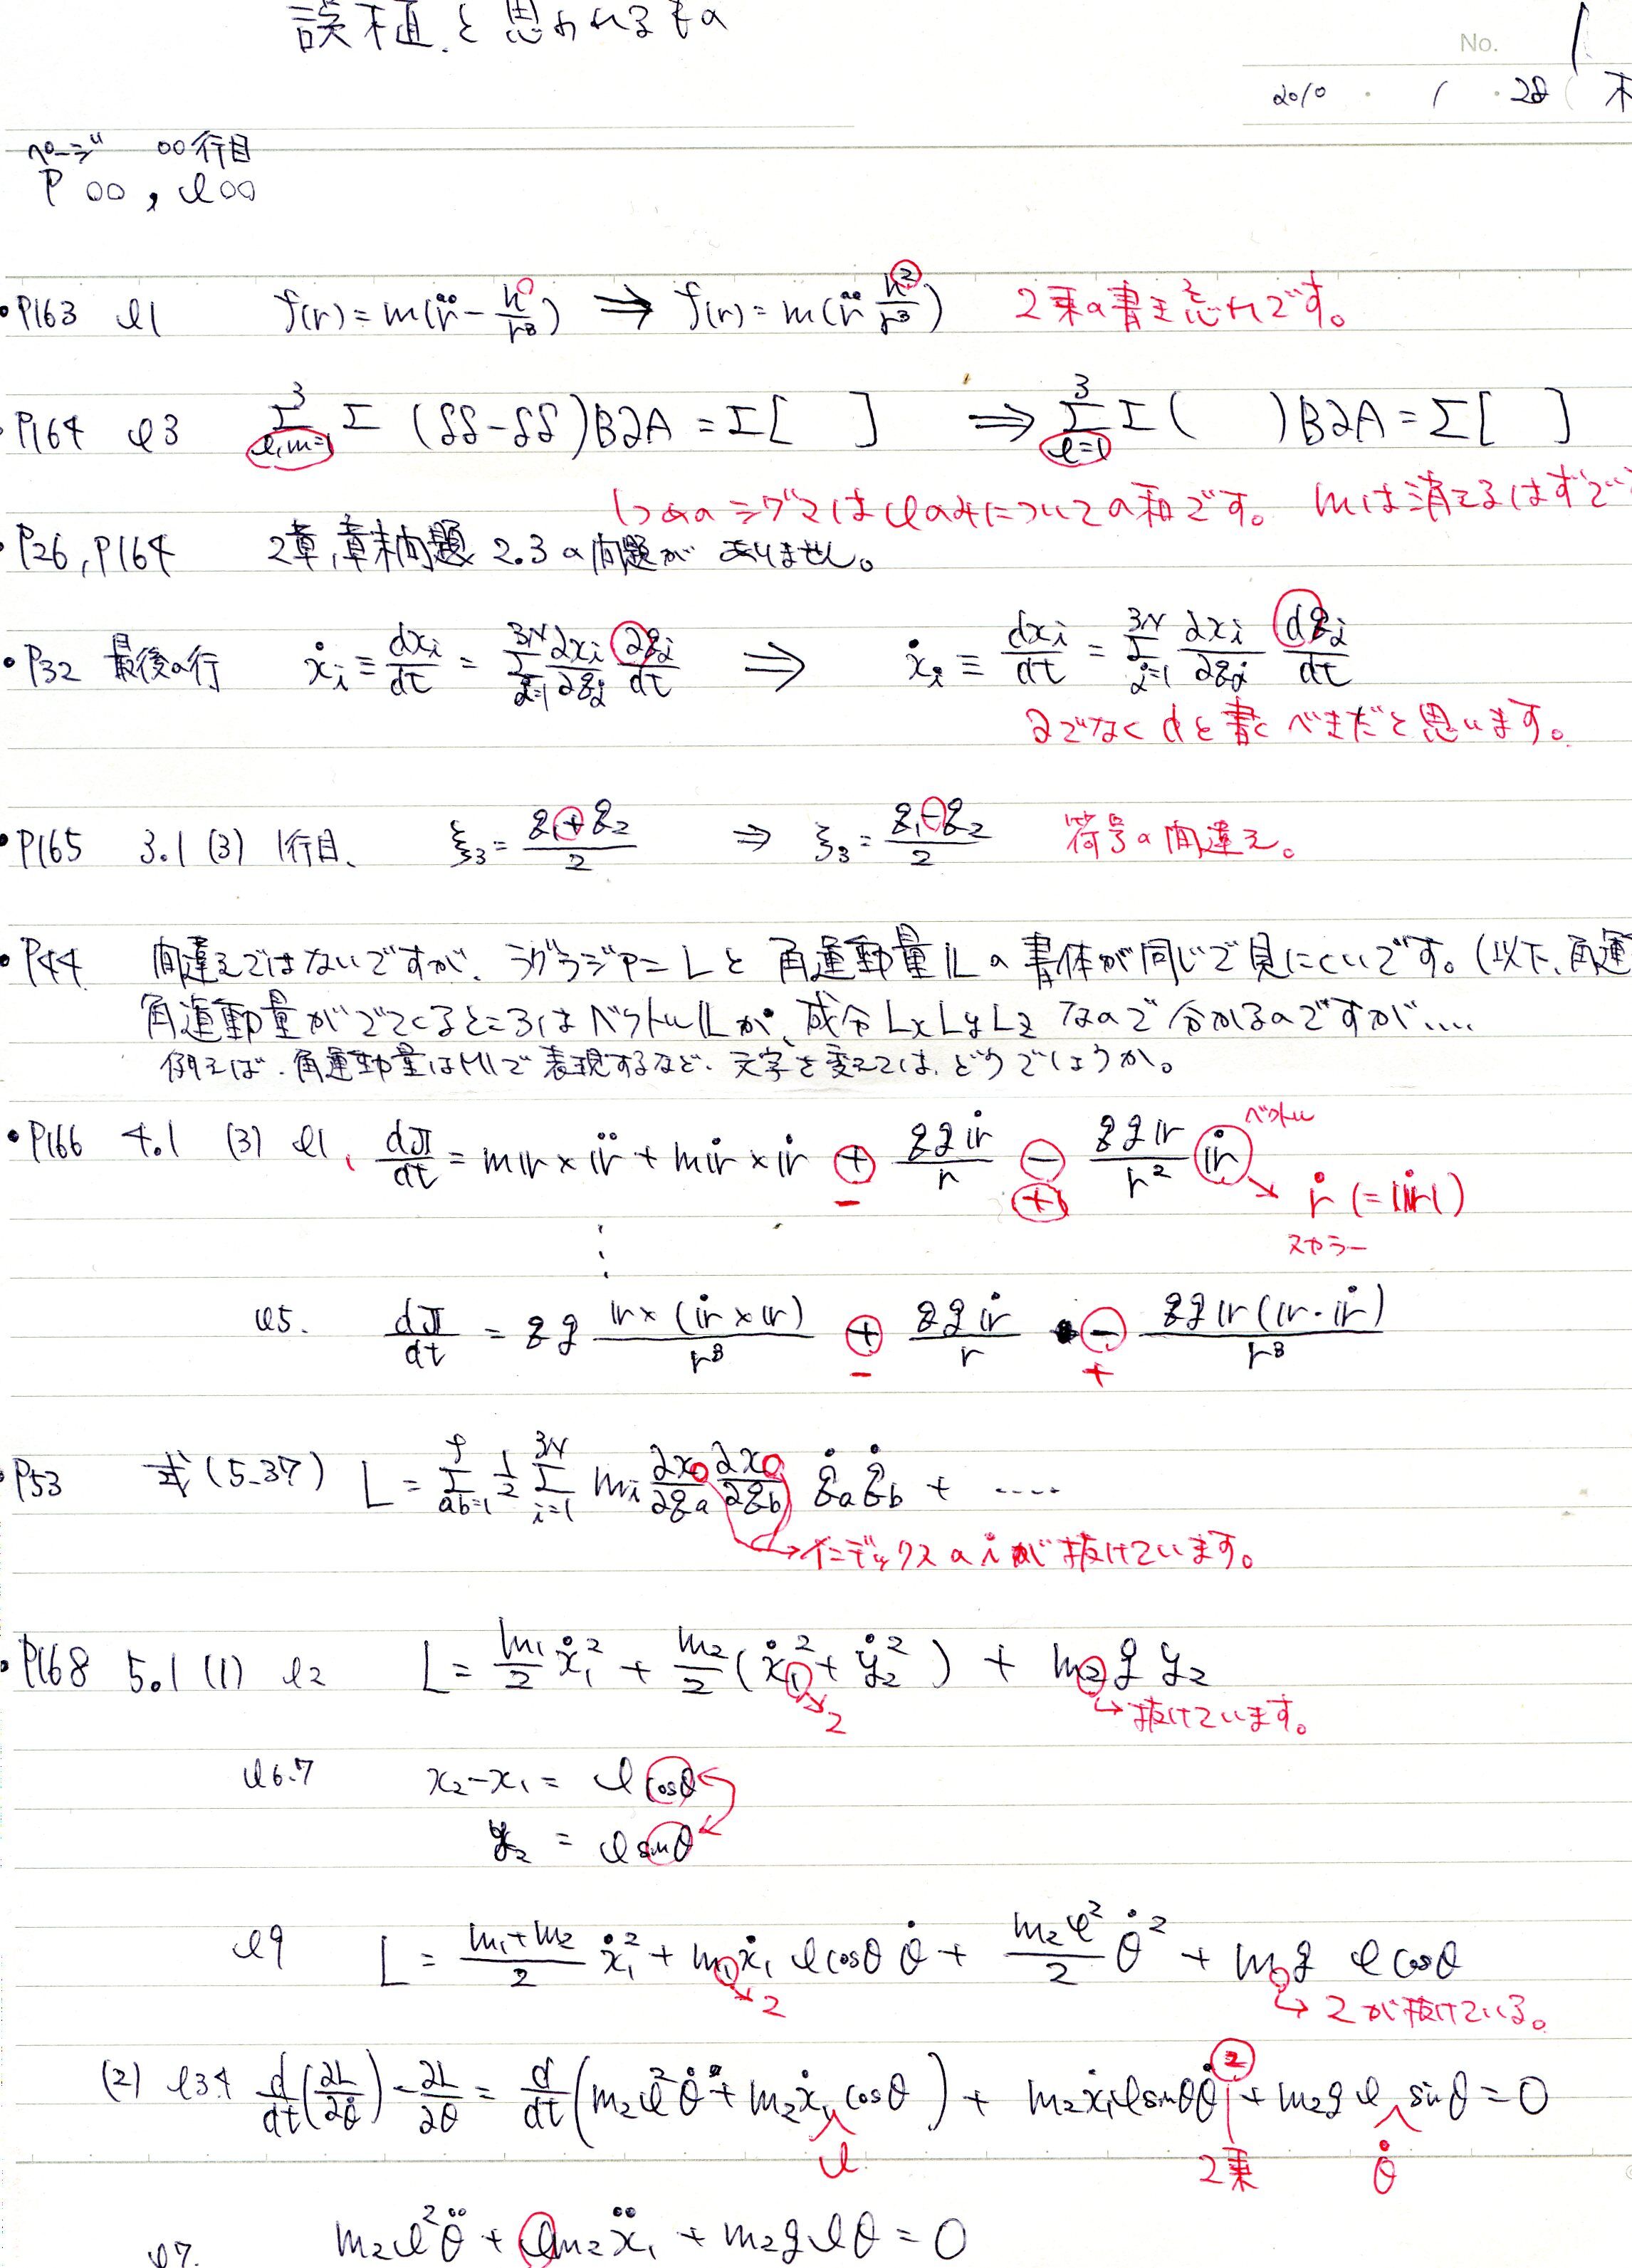 誤植と思われるもの
No. 1
2010 . 1 . 28 ( 木
ページ 00行目
P 00 , l00
・P163 l1 f(r) = m(r̈ - h/r³) ⇒ f(r) = m(r̈ h²/r³) 2乗の書き忘れです。
・P164 l3 Σ^3_{l,m=1} Σ (δδ-δδ)B∂A = Σ[ ] ⇒ Σ^3_{l=1} Σ ( )B∂A = Σ[ ]
1つめのシグマはlのみについての和です。 mは消えるはずで
・P26, P164 2章,章末問題 2.3の問題がありません。
・P32 最後の行 ẋi ≡ dxi/dt = Σ^{3N}_{j=1} ∂xi/∂qj ∂qj/dt ⇒ ẋi ≡ dxi/dt = Σ^{3N}_{j=1} ∂xi/∂qj dqj/dt
∂でなくdと書くべきだと思います。
・P165 3.1 (3) 1行目、 ξ3 = (q1+q2)/2 ⇒ ξ3 = (q1-q2)/2 符号の間違え。
・P44 間違えではないですが、ラグラジアン Lと 角運動量 𝕃の書体が同じで見にくいです。(以下、角運
角運動量がでてくるところは ベクトル𝕃か、成分 Lx Ly Lz なので分かるのですが....
例えば、角運動量はMで表現するなど、文字を変えては、どうでしょうか。
・P166 4.1 (3) l1, d𝕁/dt = m𝕣 × 𝕣̈ + m𝕣̇ × 𝕣̇ + qg𝕣̇/r - qg𝕣/r² 𝕣̇ ベクトル
- + → ṙ (= |𝕣̇|)
スカラー
l5. d𝕁/dt = qg 𝕣×(𝕣̇×𝕣)/r³ + qg𝕣̇/r - qg𝕣(𝕣・𝕣̇)/r³
- +
・P53 式(5.37) L = Σ^f_{ab=1} 1/2 Σ^{3N}_{i=1} mi ∂x/∂qa ∂x/∂qb q̇a q̇b + ....
→インデックスの i が抜けています。
・P168 5.1 (1) l2 L = m1/2 ẋ1² + m2/2 (ẋ1² + ẏ2²) + m2 g y2
→2 →抜けています。
l6.7 x2-x1 = l cosθ
y2 = l sinθ
l9 L = (m1+m2)/2 ẋ1² + m1ẋ1 l cosθ θ̇ + m2l²/2 θ̇² + m g l cosθ
→2 →2が抜けている。
(2) l3.4 d/dt(∂L/∂θ̇) - ∂L/∂θ = d/dt(m2l²θ̇ + m2ẋ1 cosθ) + m2ẋ1l sinθθ̇² + m2gl sinθ = 0
l 2乗 θ̇
l7. m2l²θ̈ + lm2ẍ1 + m2glθ = 0